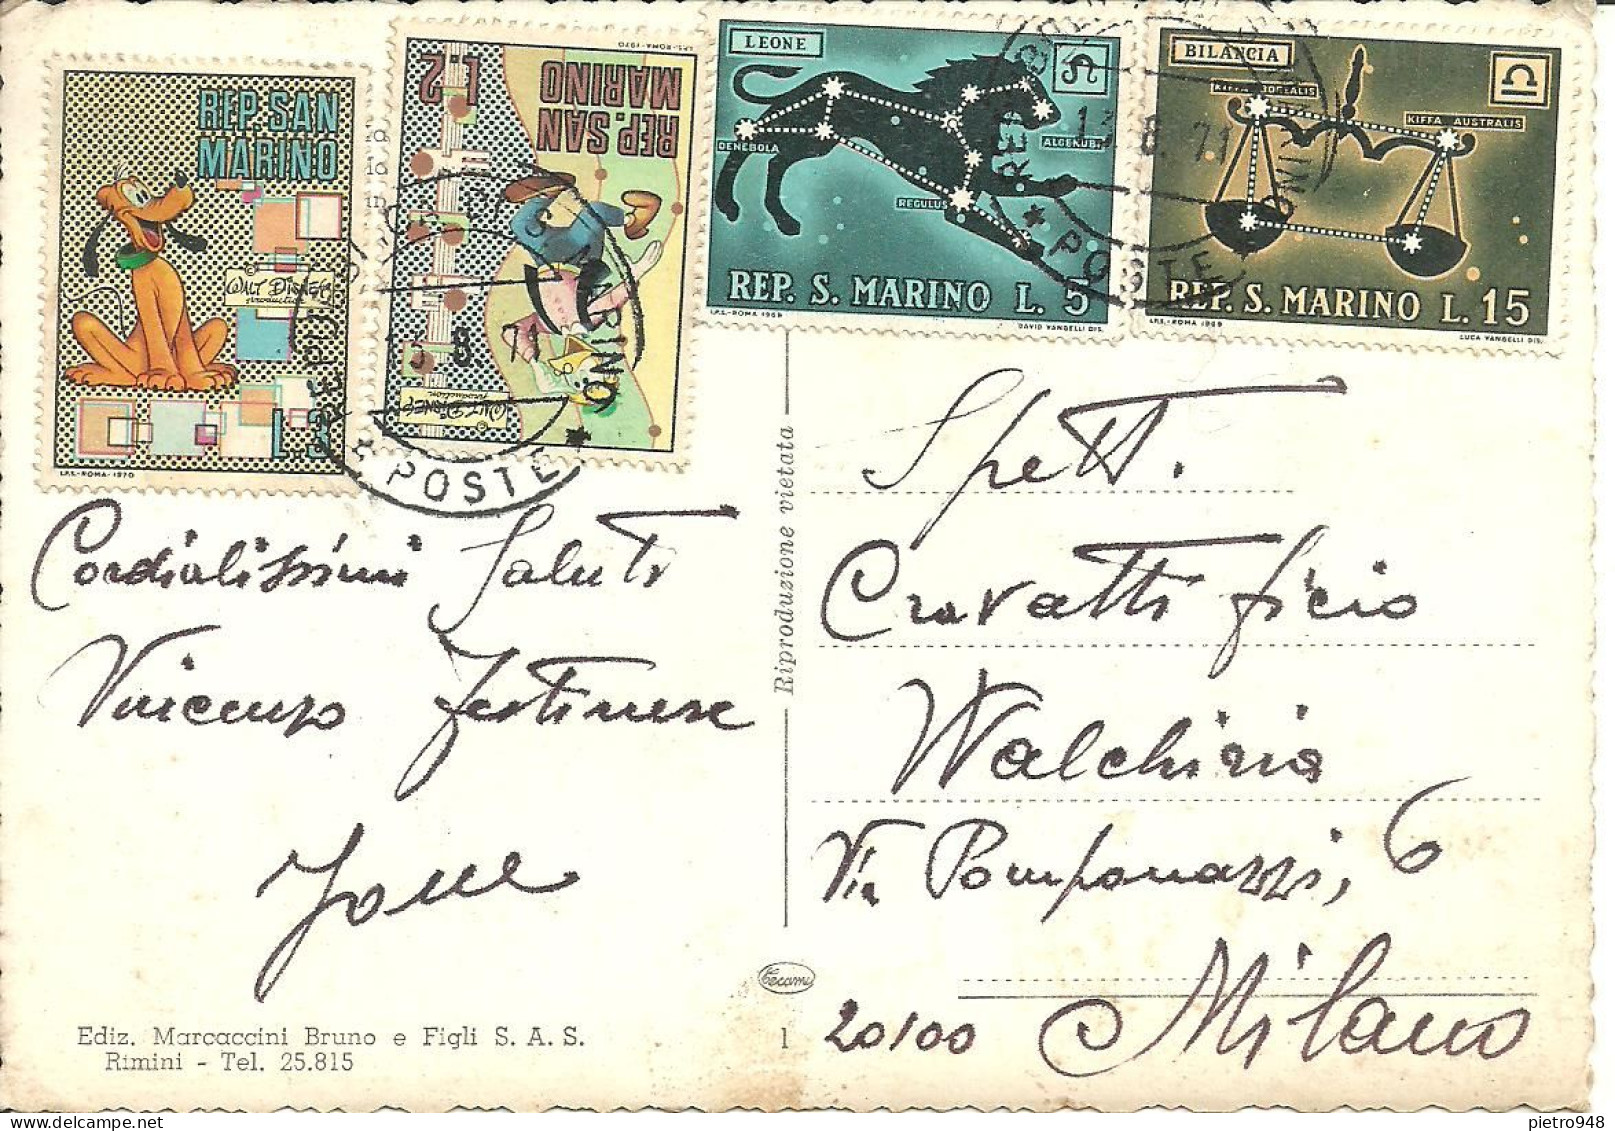 REP. SAN
MARINO
© WALT DISNEY
production
L.3
I.P.S.-ROMA-1970
REP. SAN
MARINO
L.2
© WALT DISNEY
production
I.P.S.-ROMA-1970
LEONE
DENEBOLA
ALGENUBI
REGULUS
REP. S. MARINO L. 5
I.P.S.-ROMA 1969
DAVID VANGELLI DIS.
BILANCIA
KIFFA BOREALIS
KIFFA AUSTRALIS
REP. S. MARINO L. 15
I.P.S.-ROMA 1969
LUCA VANGELLI DIS.
13. 8. 71
POSTE
13. 8. 71
POSTE
Cordialissimi Saluti
Vincenzo
Riproduzione vietata
Spett.
Cravattificio
Walchiria
Via Pomponazzi, 6
20100 Milano
Ediz. Marcaccini Bruno e Figli S. A. S.
Rimini - Tel. 25.815
1
pietro948